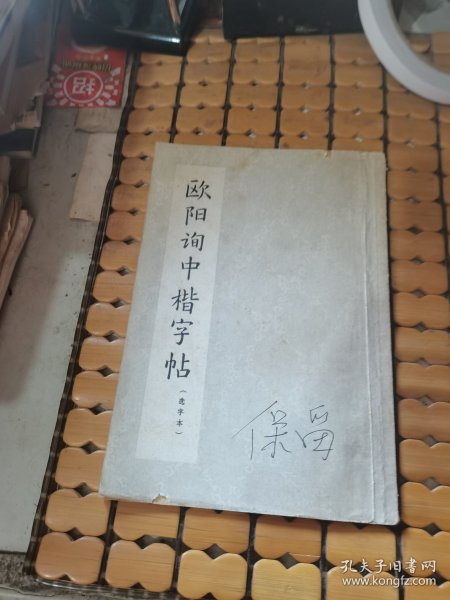 欧阳询中楷字帖
（选字本）
保留
孔夫子旧书网
www.kongfz.com